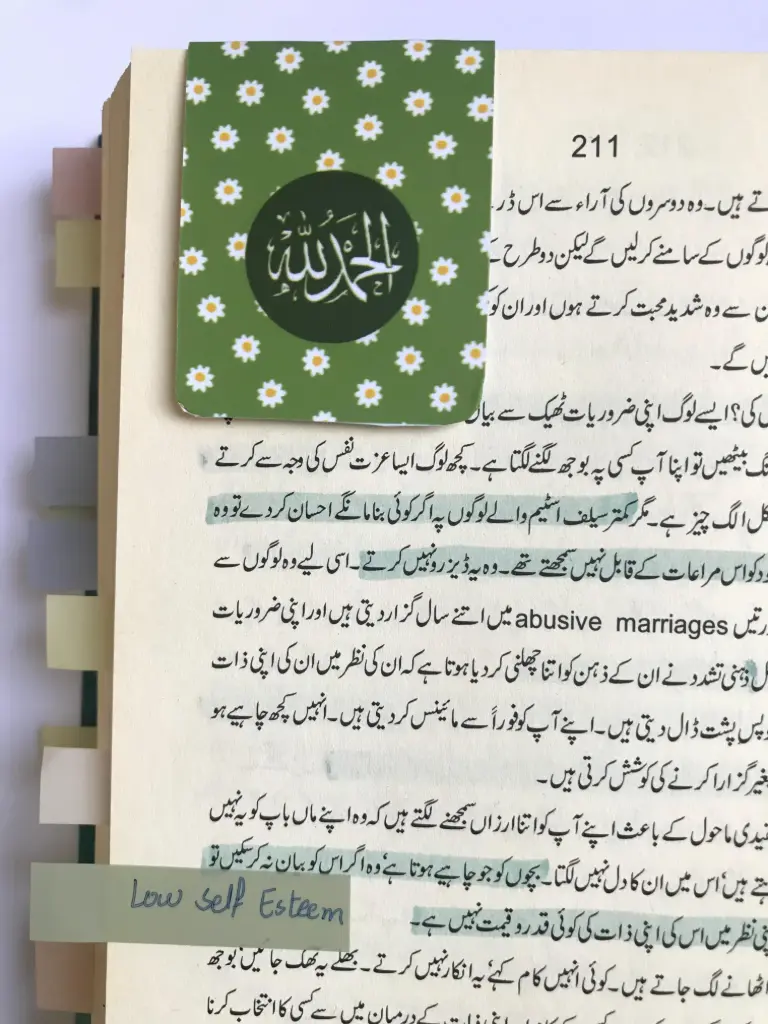 211
الحمدلله
تے ہیں۔وہ دوسروں کی آراء سے اس ڈر
لوگوں کے سامنے کرلیں گے لیکن دو طرح
ن سے وہ شدید محبت کرتے ہوں اور ان کو
یں گے۔
ں کی؟ ایسے لوگ اپنی ضروریات ٹھیک سے بیاں
نگ بیٹھیں تو اپنا آپ کسی پہ بوجھ لگنے لگتا ہے۔ کچھ لوگ ایسا عزت نفس کی وجہ سے کرتے
کل الگ چیز ہے۔ مگر کمتر سیلف اسٹیم والے لوگوں پہ اگر کوئی بنا مانگے احسان کر دے تو وہ
ود کو اس مراعات کے قابل نہیں سمجھتے تھے۔ وہ یہ ڈیزرو نہیں کرتے۔ اسی لیے وہ لوگوں سے
ورتیں abusive marriages میں اتنے سال گزار دیتی ہیں اور اپنی ضروریات
ل ذہنی تشدد نے ان کے ذہن کو اتنا چھلنی کر دیا ہوتا ہے کہ ان کی نظر میں ان کی اپنی ذات
و پس پشت ڈال دیتی ہیں۔ اپنے آپ کو فوراً سے مائینس کر دیتی ہیں۔ انہیں کچھ چاہیے ہو
بغیر گزارا کرنے کی کوشش کرتی ہیں۔
قیدی ماحول کے باعث اپنے آپ کو اتنا ارزاں سمجھنے لگتے ہیں کہ وہ اپنے ماں باپ کو یہ نہیں
تے ہیں، اس میں ان کا دل نہیں لگتا۔ بچوں کو جو چاہیے ہوتا ہے، وہ اگر اس کو بیان نہ کر سکیں تو
پنی نظر میں اس کی اپنی ذات کی کوئی قدر و قیمت نہیں ہے۔
Low Self Esteem
اٹھانے لگ جاتے ہیں۔ کوئی انہیں کام کہے، یہ انکار نہیں کرتے۔ بھلے یہ تھک جائیں، بوجھ
اپنی ذات کے درمیان میں سے کسی کا انتخاب کرنا